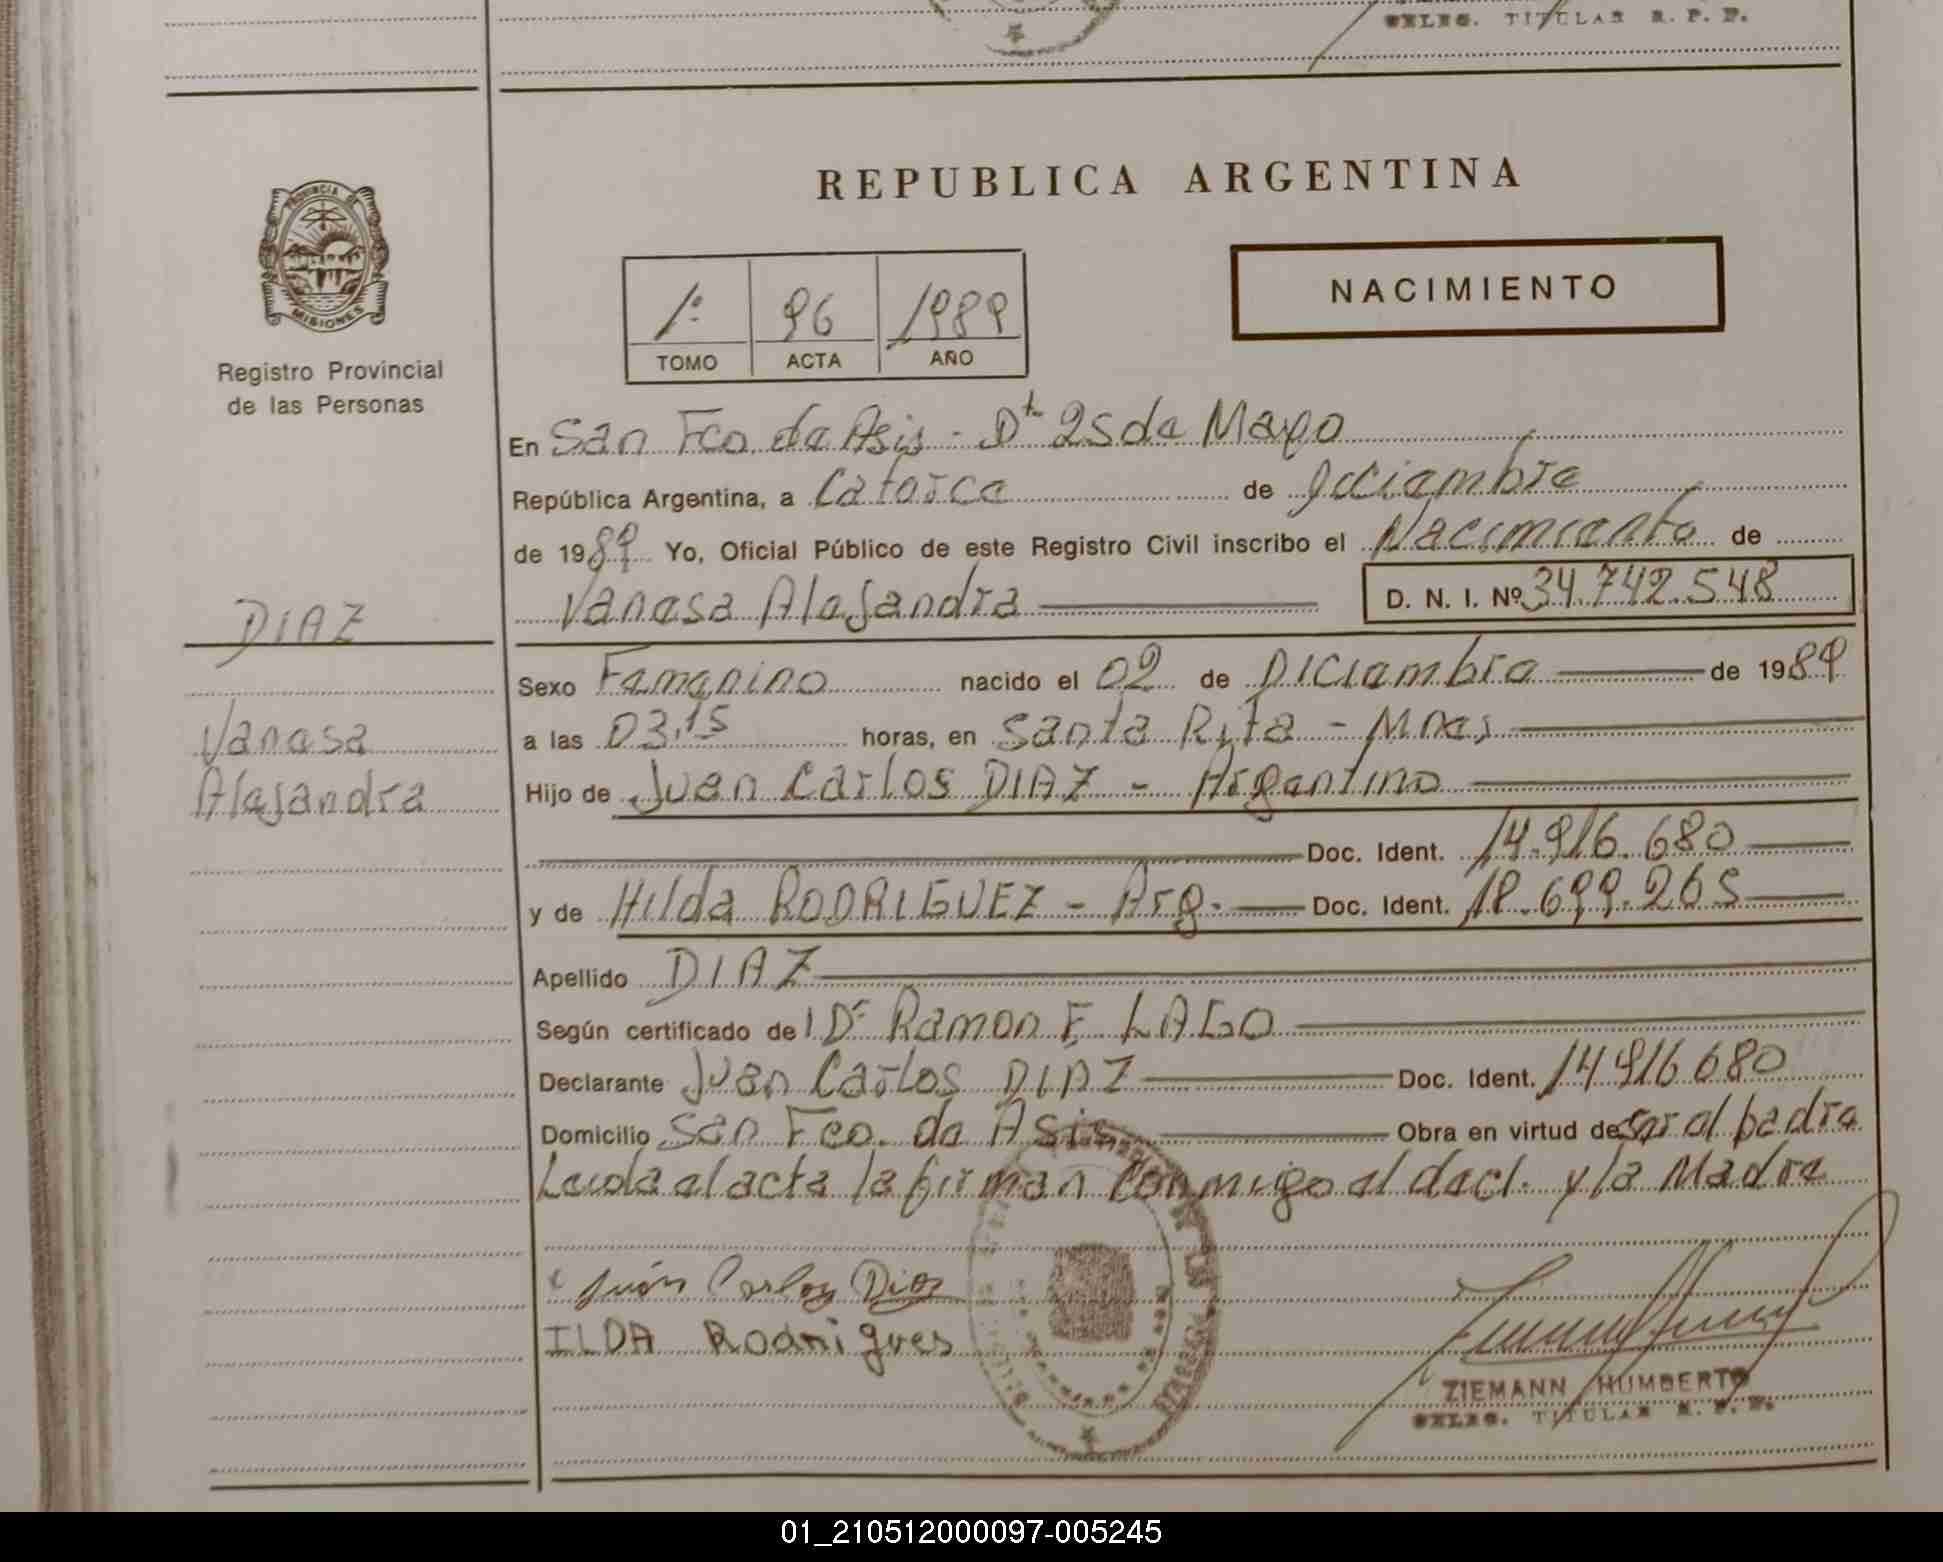 DELEG. TITULAR R. P. P.
PROVINCIA DE
MISIONES
Registro Provincial
de las Personas
REPUBLICA ARGENTINA
1º 96 1989
TOMO ACTA AÑO
NACIMIENTO
En San Fco. de Asis - Dt 25 de Mayo
República Argentina, a Catorce de Diciembre
de 1989 Yo, Oficial Público de este Registro Civil inscribo el Nacimiento de
Vanesa Alejandra D. N. I. Nº 34.742.548
DIAZ
Vanesa
Alejandra
Sexo Femenino nacido el 02 de Diciembre de 1989
a las 03,15 horas, en Santa Rita - Mnes
Hijo de Juan Carlos DIAZ - Argentino
Doc. Ident. 14.916.680
y de Hilda RODRIGUEZ - Arg. Doc. Ident. 18.699.265
Apellido DIAZ
Según certificado del Dr Ramon F LAGO
Declarante Juan Carlos DIAZ Doc. Ident. 14916680
Domicilio San Fco. de Asis Obra en virtud de ser el padre
Leida el acta la firman Conmigo el decl. y la Madre
Juan Carlos Diaz
ILDA Rodrigues
ZIEMANN HUMBERTO
DELEG. TITULAR R. P. P.
01_210512000097-005245